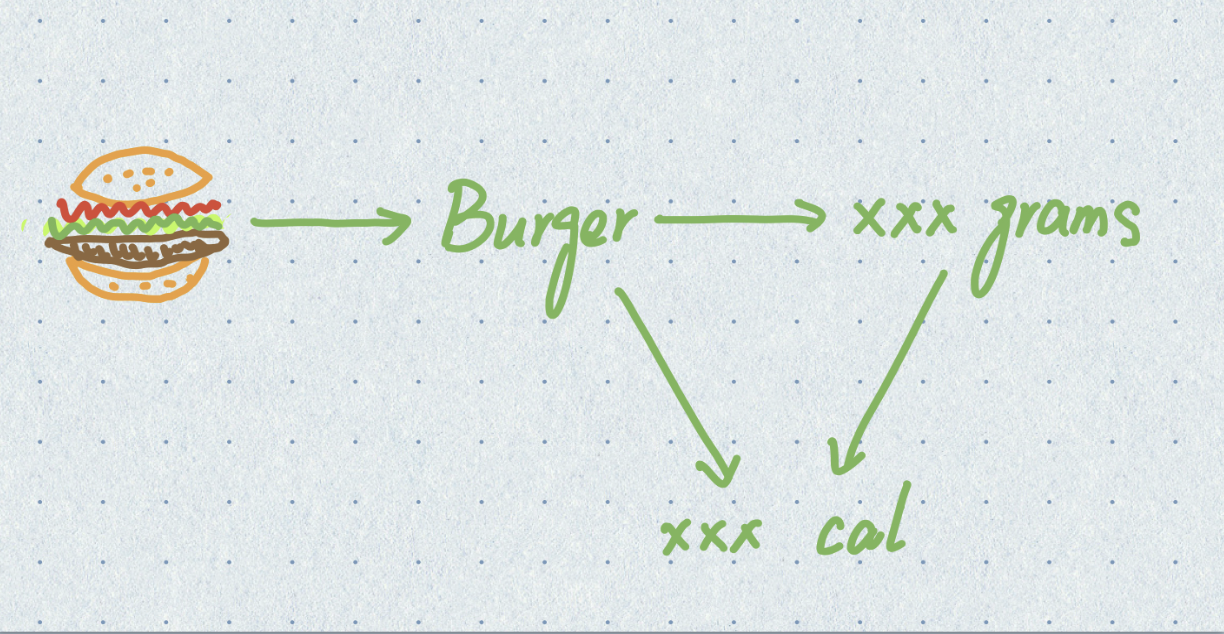 Burger xxx grams
xxx cal